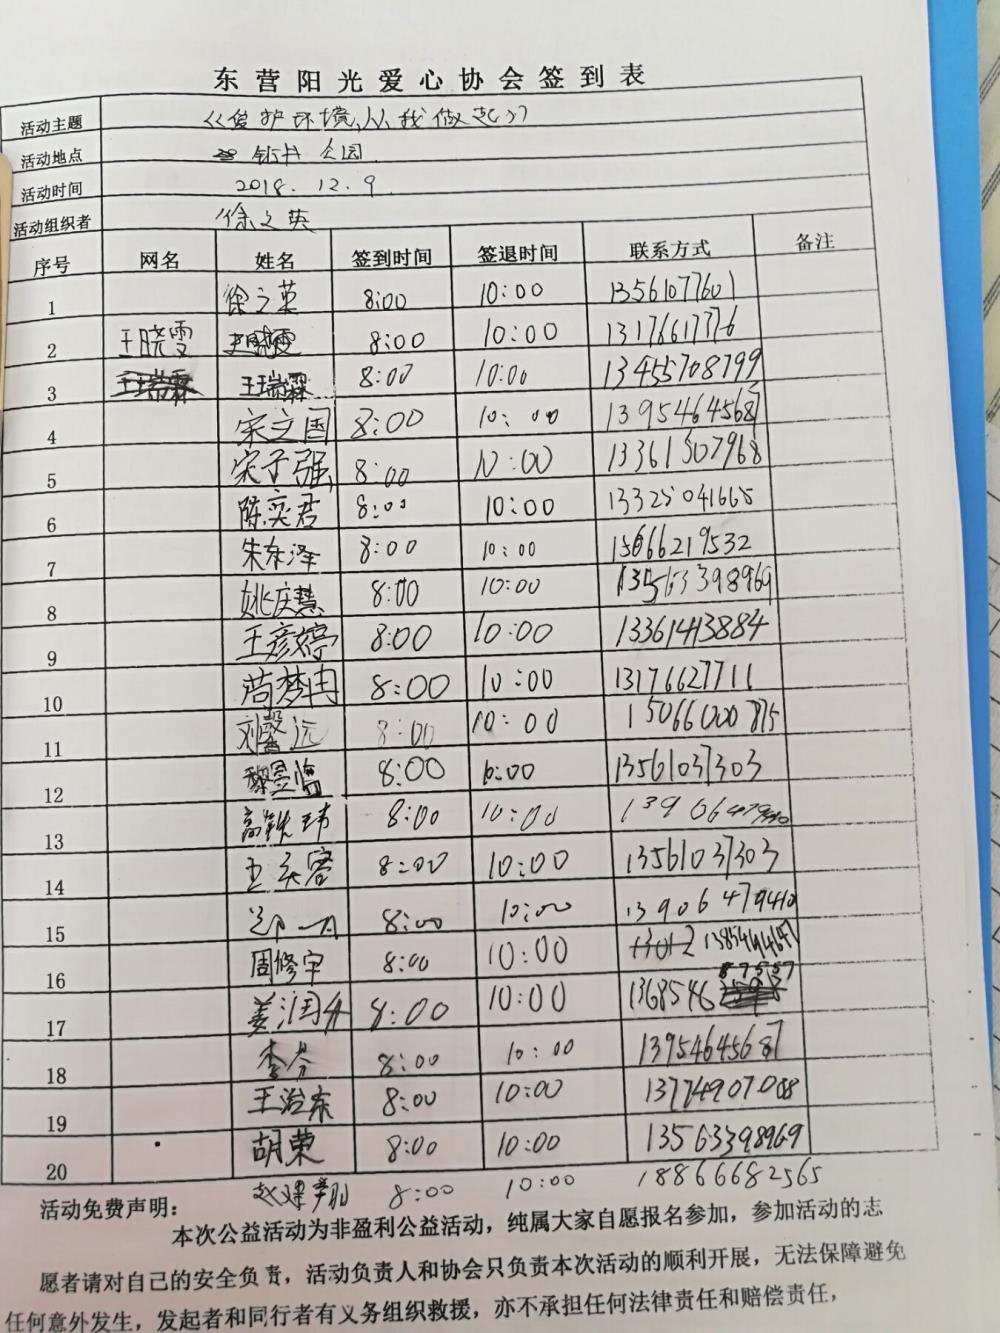 东营阳光爱心协会签到表
活动主题 《爱护环境,从我做起》
活动地点 钻井公园
活动时间 2018.12.9
活动组织者 徐之英
序号 网名 姓名 签到时间 签退时间 联系方式 备注
1 徐之英 8:00 10:00 13561077601
2 王晓雯 8:00 10:00 13176617776
3 王瑞霖 王瑞霖 8:00 10:00 13455708799
4 宋立国 8:00 10:00 13954645687
5 宋子强 8:00 10:00 13361507968
6 陈奕君 8:00 10:00 13325041665
7 朱东泽 8:00 10:00 15066219532
8 姚庆慧 8:00 10:00 13563398969
9 王彦婷 8:00 10:00 13361413884
10 尚梦冉 8:00 10:00 13176627711
11 刘馨远 8:00 10:00
12 8:00 10:00 13561037303
13 高铁玮 8:00 10:00
14 8:00 10:00 13561037303
15 8:00 10:00 13906479410
16 周修宇 8:00 10:00
17 姜润升 8:00 10:00 136854687557
18 李芬 8:00 10:00 13954645687
19 王治东 8:00 10:00
20 胡荣 8:00 10:00 13563398969
赵建 8:00 10:00 18866682565
活动免费声明:
本次公益活动为非盈利公益活动，纯属大家自愿报名参加，参加活动的志
愿者请对自己的安全负责，活动负责人和协会只负责本次活动的顺利开展，无法保障避免
任何意外发生，发起者和同行者有义务组织救援，亦不承担任何法律责任和赔偿责任，